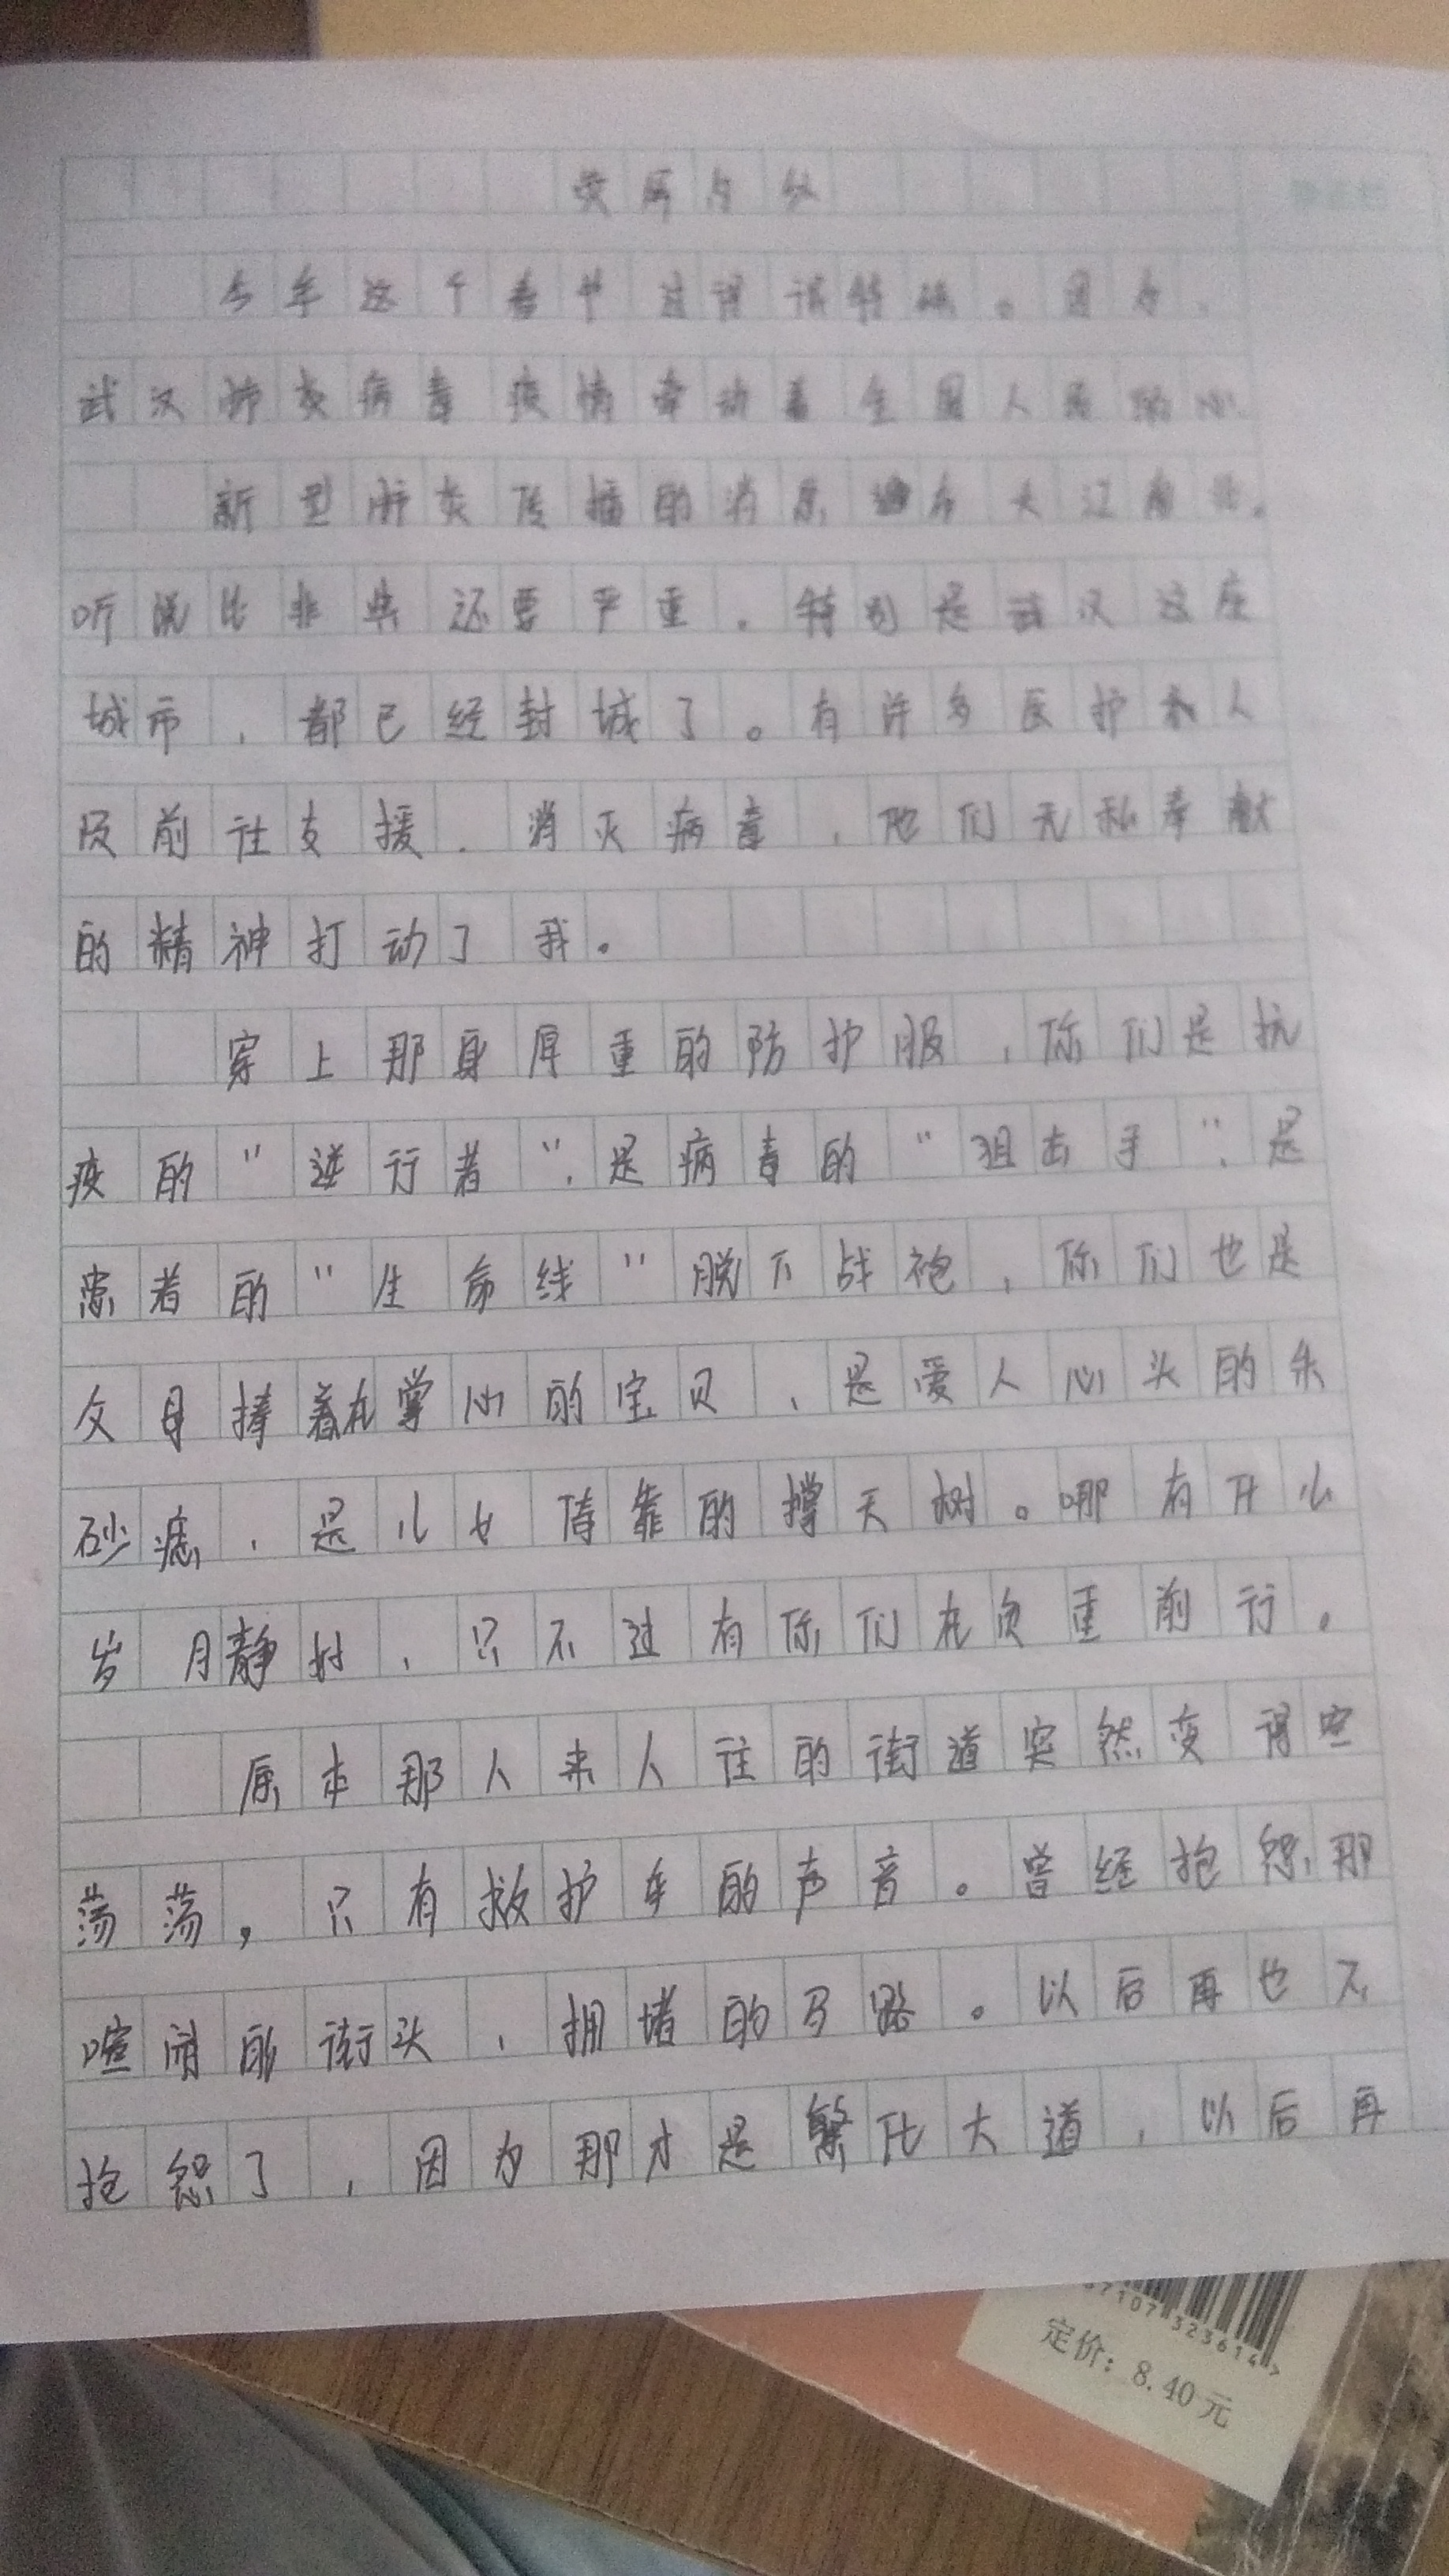 今年这个春节过得很特殊。因为,
武汉肺炎病毒疫情牵动着全国人民的心
新型肺炎传播的消息遍布大江南北。
听说比非典还要严重。特别是武汉这座
城市,都已经封城了。有许多医护和人
员前往支援.消灭病毒,他们无私奉献
的精神打动了我。
穿上那身厚重的防护服,你们是抗
疫的“逆行者”,是病毒的“狙击手”,是
患者的“生命线”脱下战袍,你们也是
父母捧着在掌心的宝贝,是爱人心头的朱
砂痣,是儿女倚靠的撑天树。哪有什么
岁月静好,只不过有你们在负重前行。
原本那人来人往的街道突然变得空
荡荡,只有救护车的声音。曾经抱怨那
喧闹的街头,拥堵的马路。以后再也不
抱怨了,因为那才是繁华大道,以后再
定价:8.40元